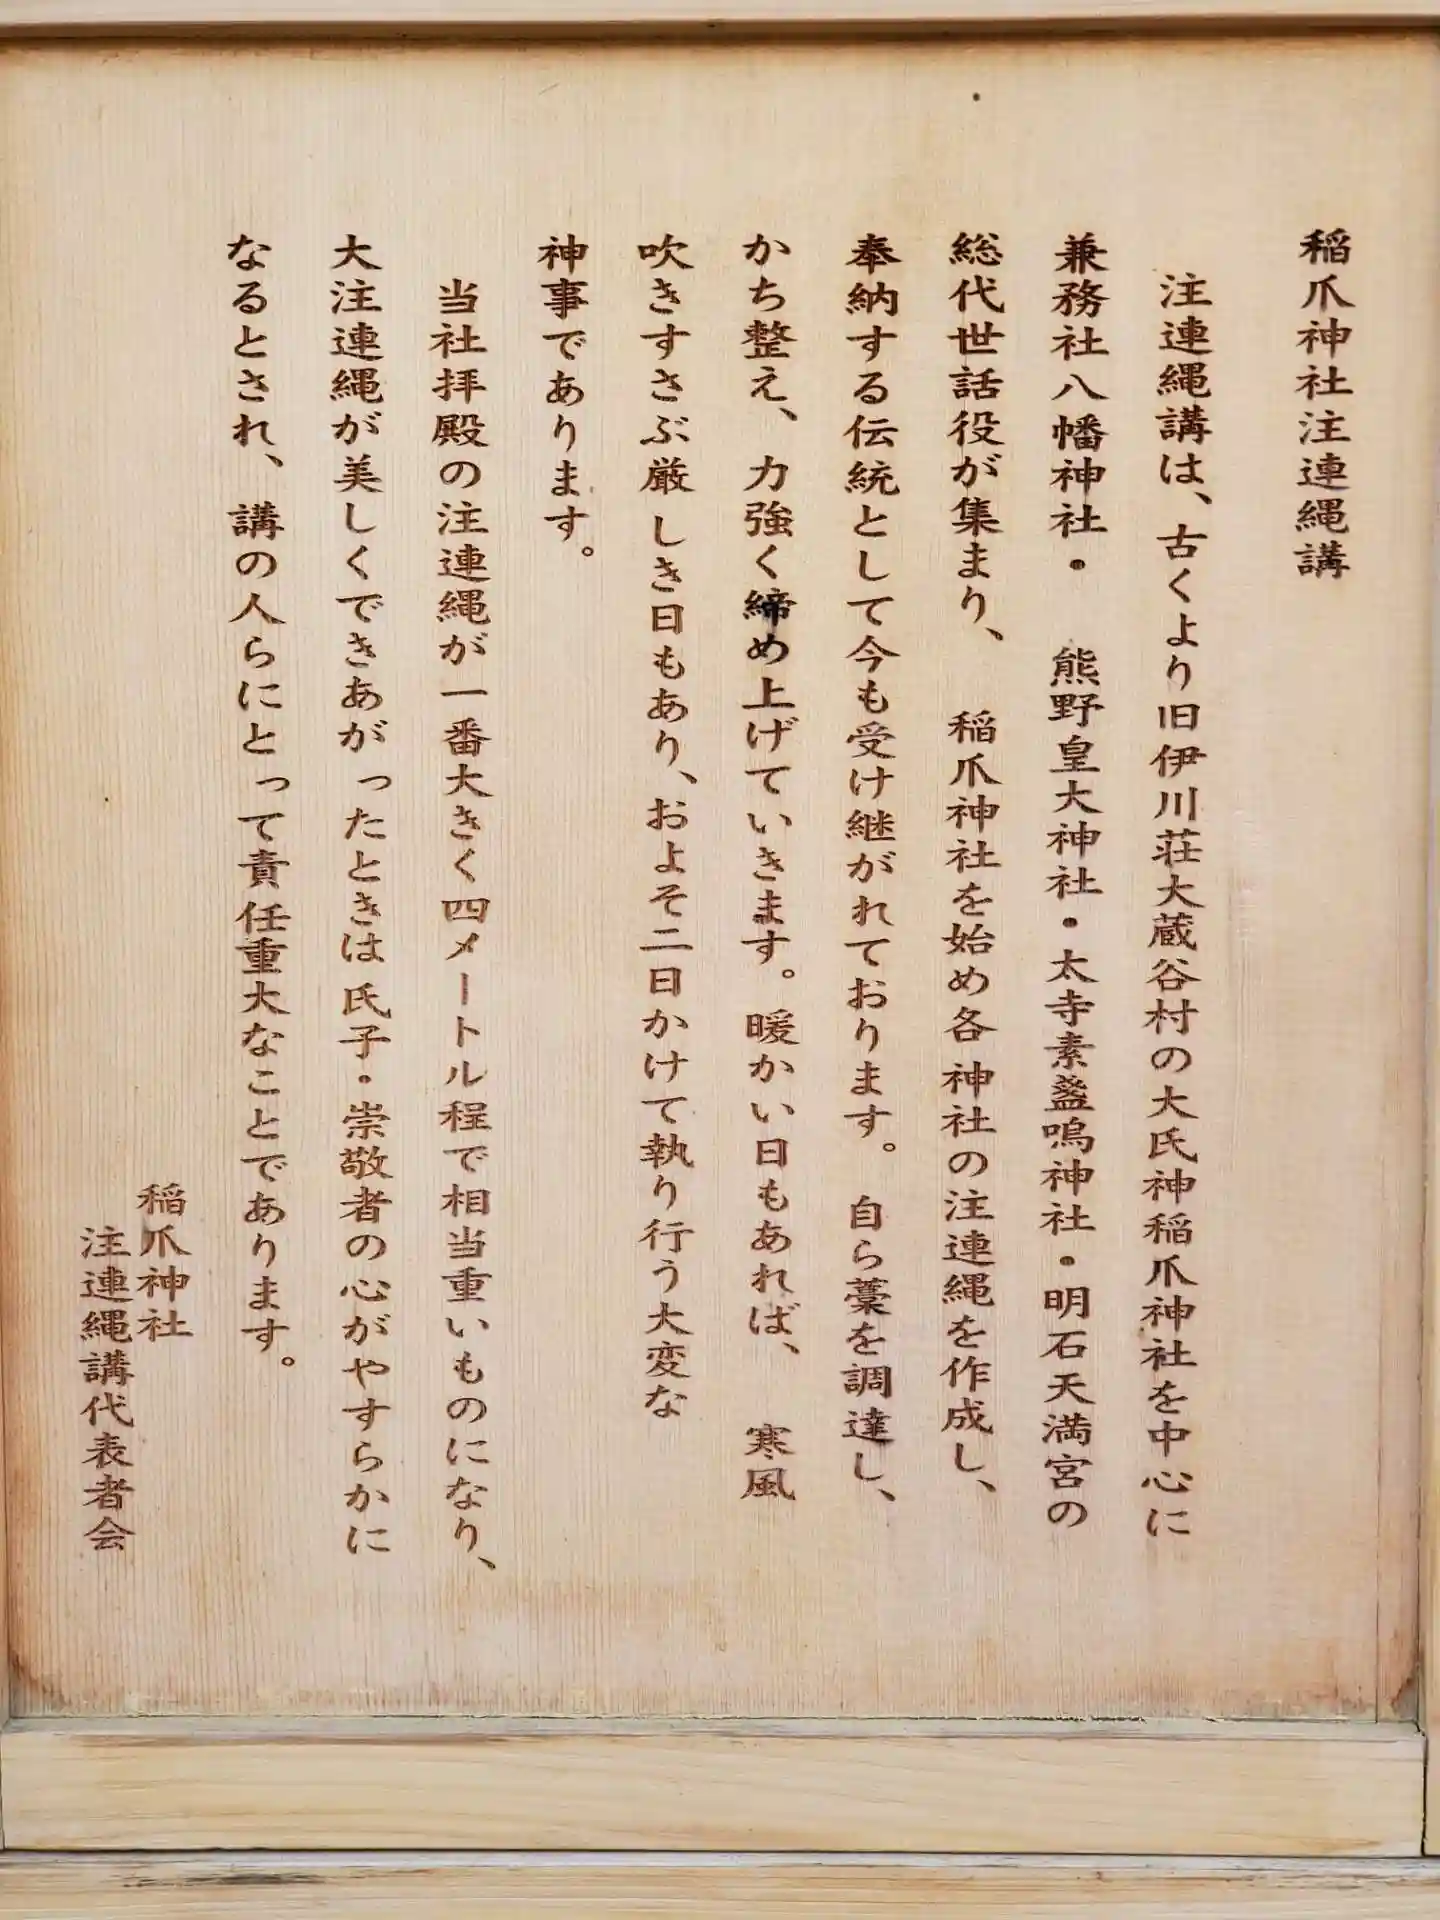 稲爪神社注連縄講
注連縄講は、古くより旧伊川荘大蔵谷村の大氏神稲爪神社を中心に
兼務社八幡神社・熊野皇大神社・太寺素盞嗚神社・明石天満宮の
総代世話役が集まり、稲爪神社を始め各神社の注連縄を作成し、
奉納する伝統として今も受け継がれております。自ら藁を調達し、
かち整え、力強く締め上げていきます。暖かい日もあれば、寒風
吹きすさぶ厳しき日もあり、およそ二日かけて執り行う大変な
神事であります。
当社拝殿の注連縄が一番大きく四メートル程で相当重いものになり、
大注連縄が美しくできあがったときは氏子・崇敬者の心がやすらかに
なるとされ、講の人らにとって責任重大なことであります。
稲爪神社
注連縄講代表者会